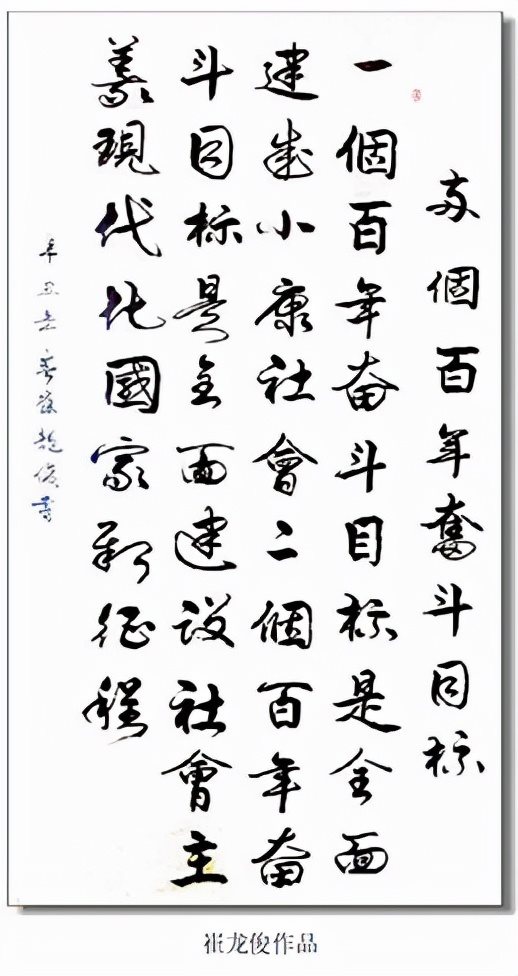 两個百年奮斗目标
一個百年奋斗目标是全面
建成小康社會二個百年奋
斗目标是全面建设社會主
義現代化國家新征程
辛丑 春崔龍俊書
崔龙俊作品